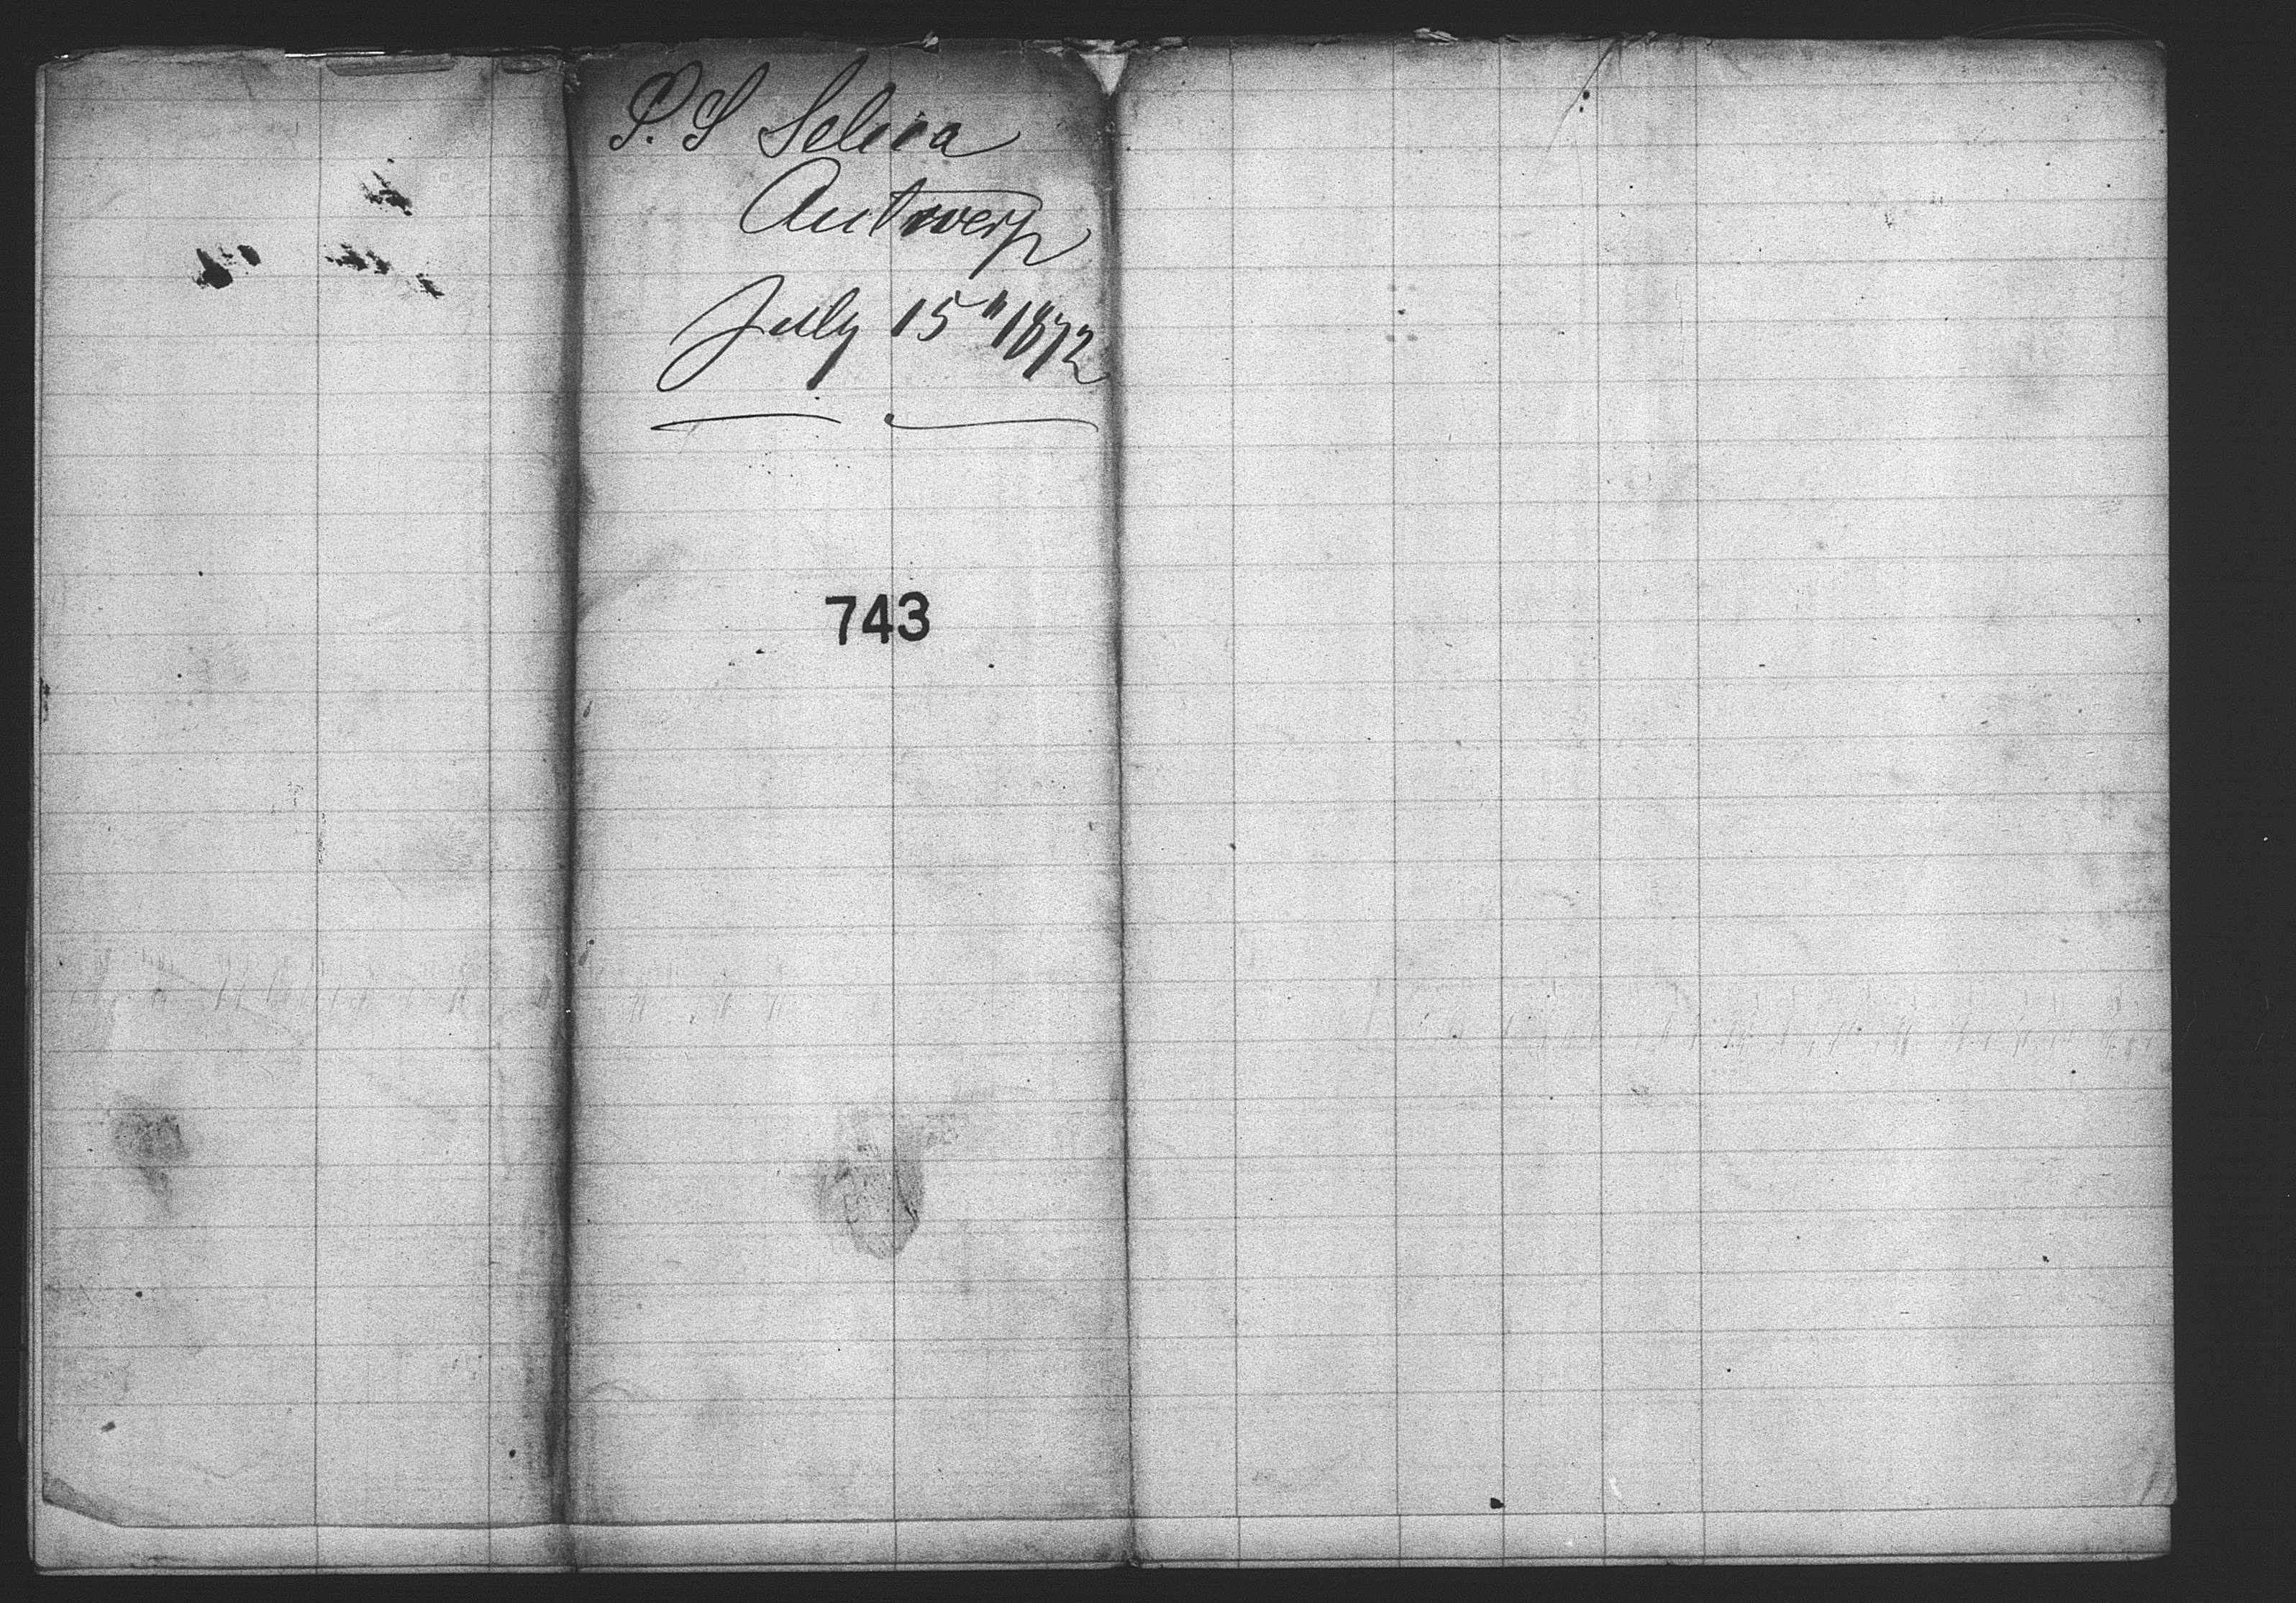 S. S Selica
Antwerp
July 15" 1872
743